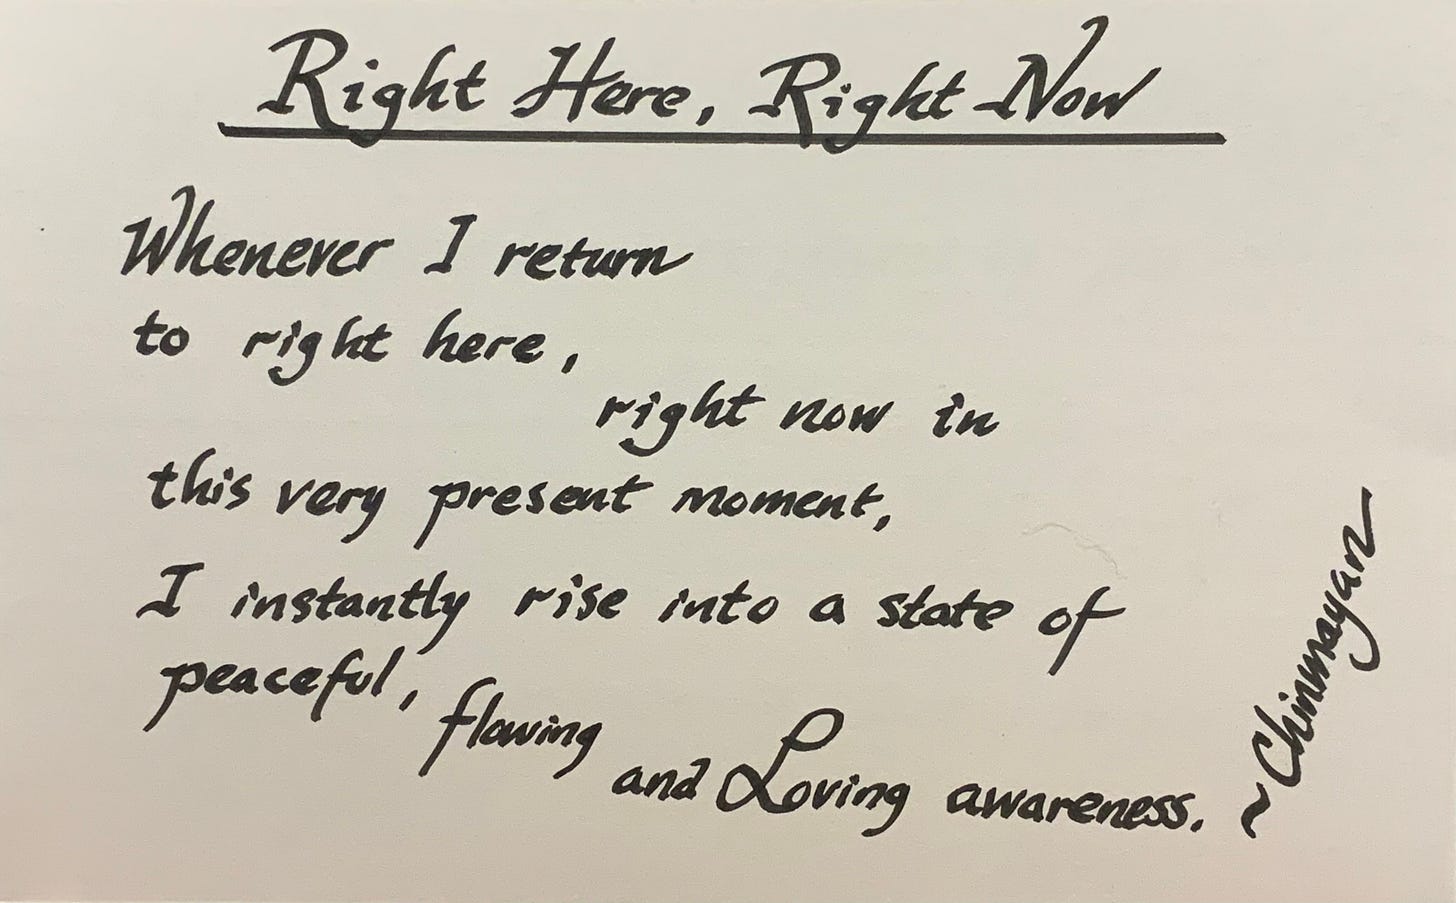 Right Here, Right Now
Whenever I return
to right here,
right now in
this very present moment,
I instantly rise into a state of
peaceful,
flowing
and Loving awareness.
~Chinmayan